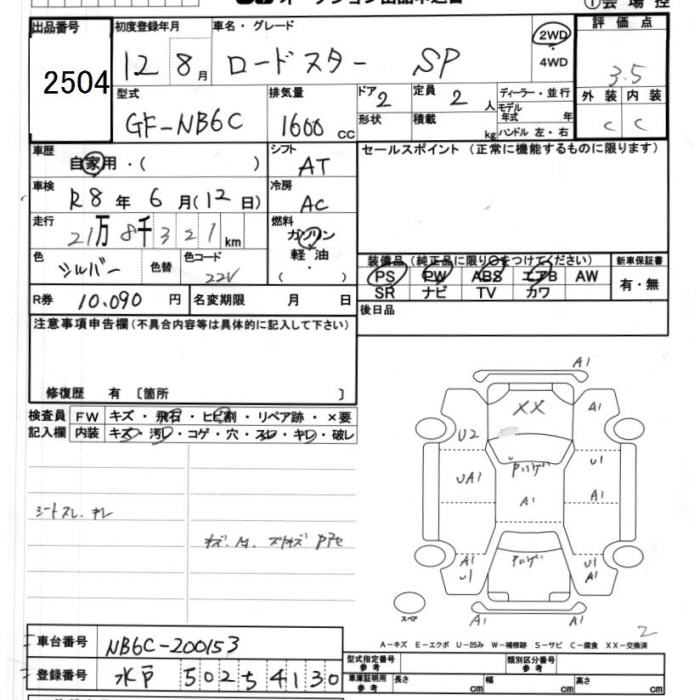 出品番号 初度登録年月 車名・グレード 2WD 評価点
2504 12 8月 ロードスター SP 4WD 3.5
型式 排気量 ドア 2 定員 2 人 ディーラー・並行 外装 内装
GF-NB6C 1600 cc 形状 積載 kg モデル年式 年 C C
ハンドル 左・右
車歴 シフト セールスポイント (正常に機能するものに限ります)
自家用・( ) AT
車検 冷房
R8年6月(12日) AC
走行 燃料
21万8千321km ガソリン
軽油
色 色替 色コード 装備品(純正品に限り○をつけてください) 新車保証書
シルバー 22V ( ) PS PW ABS エアB AW 有・無
R券 10.090 円 名変期限 月 日 SR ナビ TV カワ
注意事項申告欄(不具合内容等は具体的に記入して下さい) 後日品
修復歴 有 〔箇所 〕
検査員 FW キズ・飛石・ヒビ割・リペア跡・×要
記入欄 内装 キズ・汚レ・コゲ・穴・スレ・キレ・破レ
シートスレ、キレ
A1
XX A1
U2
UA1 U1
A1 A1
A1 U1
U1 A1
A1 A1
スペア
2
A-キズ E-エクボ U-凹み W-補修跡 S-サビ C-腐食 XX-交換済
車台番号 NB6C-200153
登録番号 水戸 502 54130
型式指定番号 参考 類別区分番号 参考
車庫証明用 参考 長さ cm 幅 cm 高さ cm